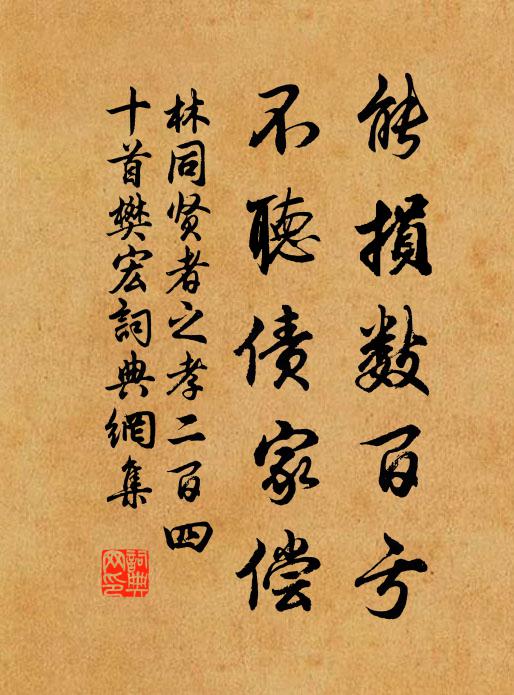 能損数百亏
不聽债家偿
林同贤者之孝二百四
十首樊宏詞典網集
詞典
网印